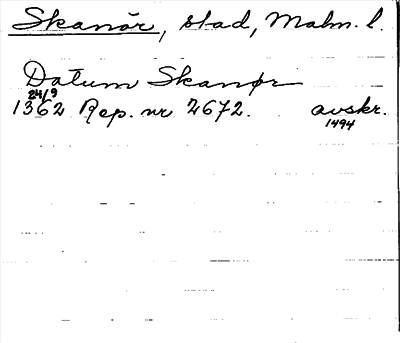 Skanör, stad, Malm. l.
Datum Skanør
24/9
1362 Rep. nr 2672. avskr.
1494